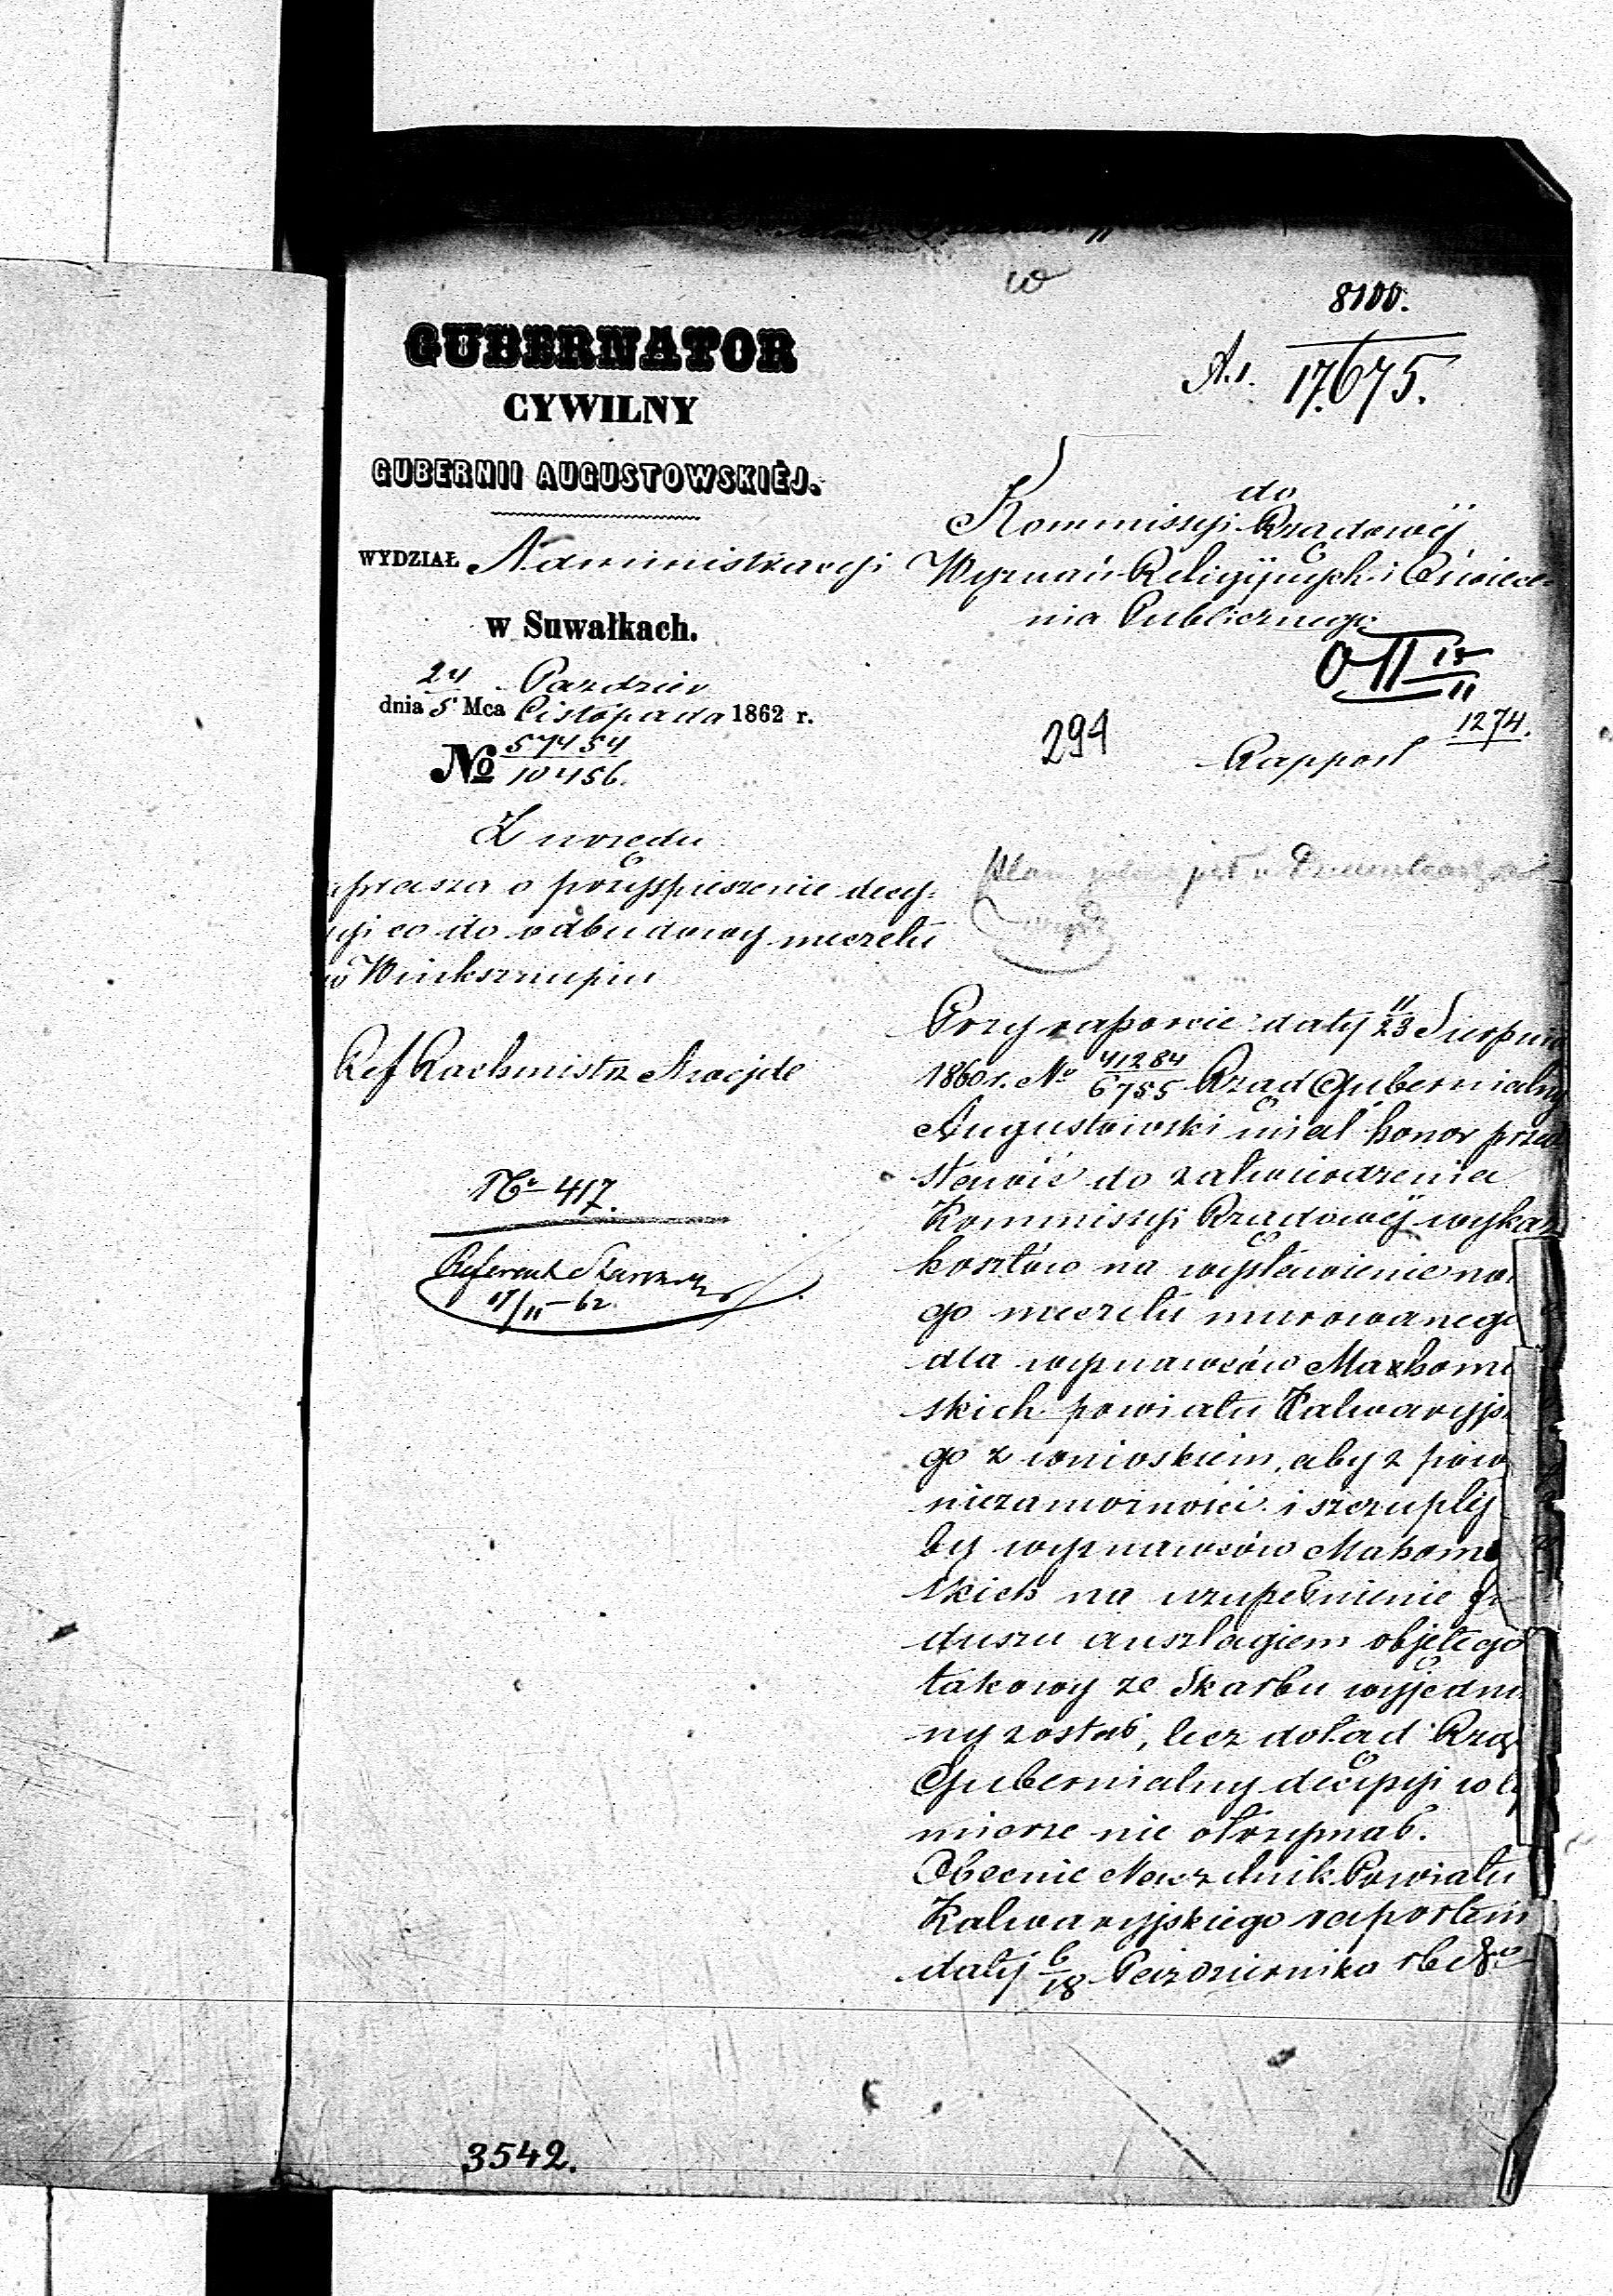 w
8100.
A.1. 17.675.
GUBERNATOR
CYWILNY
GUBERNII AUGUSTOWSKIÉJ.
WYDZIAŁ Administracyi
w Suwałkach.
24 Paździer
dnia 5 Mca Listopada 1862 r.
№ 57454
10456.
Z urzędu
uprasza o przyspieszenie decy-
zyi co do odbudowy meczetu
w Winksznupiu
Ref Rachmistrz
No 417.
Referent
17/11-62.
do
Kommissyi Rządowéj
Wyznań Religijnych i Oświece-
nia Publicznego
O II 15
11
1274.
294
Rapport
Plan
Przy raporcie daty 11/23 Sierpnia
1860 r. No 41284/6755 Rząd Gubernialny
Augustowski miał honor przed
stawić do zatwierdzenia
Kommissyi Rządowéj wykaz
kosztów na wystawienie no
go meczetu murowanego
dla wyznawców Mahome
skich powiatu Kalwaryjs
go z wnioskiem, aby z powo
niezamożności i szczupłéj
by wyznawców Mahome
skich na uzupełnienie fu
duszu anszlagiem objętego
takowy ze Skarbu wyjedna
ny został, lecz dotąd Rząd
Gubernialny decyzyi w té
mierze nie otrzymał.
Obecnie Naczelnik Powiatu
Kalwaryjskiego raportem
daty 6/18 Października rb
3542.